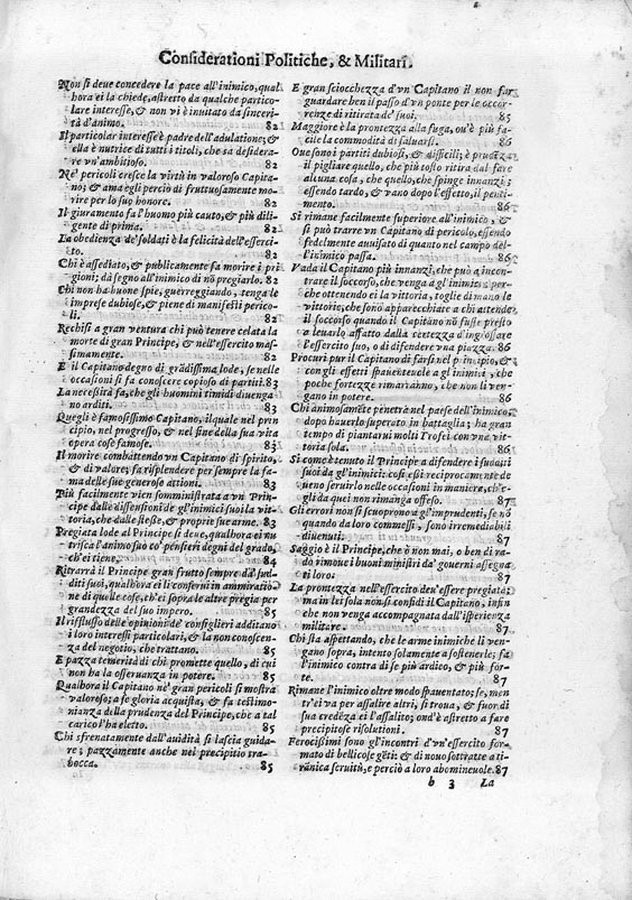 Considerationi Politiche, & Militari.
Non si deve concedere la pace all'inimico, qual
hora ei la chiede, astretto da qualche partico-
lare interesse, & non vi è inuitato da sinceri-
tà d'animo. 82
Il particolar interesse è padre dell'adulatione; &
ella è nutrice di tutti i titoli, che sà desidera-
re vn'ambitioso. 82
Ne' pericoli cresce la virtù in valoroso Capita-
no; & ama egli perciò di fruttuosamente mo-
rire per lo suo honore. 82
Il giuramento fa l'huomo più cauto, & più dili-
gente di prima. 82
La obedienza de' soldati è la felicità dell'eserci-
to. 82
Chi è assediato, & publicamente fa morire i pri
gioni; dà segno all'inimico di nō pregiarlo. 82
Chi non ha buone spie, guerreggiando, tenga le
imprese dubiose, & piene di manifesti perico-
li. 82
Rechisi a gran ventura chi può tenere celata la
morte di gran Principe, & nell'esercito mas-
simamente. 82
E il Capitano degno di grādissima lode, se nelle
occasioni si fa conoscere copioso di partiti. 83
La necessità fa, che gli huomini timidi diuenga
no arditi. 83
Quegli è famosissimo Capitano, il quale nel prin
cipio, nel progresso, & nel fine della sua vita
opera cose famose. 83
Il morire combattendo vn Capitano di spirito,
& di valore; fa risplendere per sempre la fa-
ma delle sue generose attioni. 83
Più facilmente vien somministrata a vn Prin-
cipe dalle dissensioni de gl'inimici suoi la vit-
toria, che dalle stesse, & proprie sue arme. 83
Pregiata lode al Principe si deue, qualhora ei nu
trisca l'animo suo cō pensieri degni del grado,
ch'ei tiene. 84
Ritrarrà il Principe gran frutto sempre da sud-
diti suoi, qualhora ei li conserui in ammiratio-
ne di quelle cose, ch'ei sopra le altre pregia per
grandezza del suo impero. 85
Il riflusso delle opinioni de' consiglieri additano
i loro interessi particolari, & la non conoscen-
za del negotio, che trattano. 85
E pazza temerità di chi promette quello, di cui
non ha la osseruanza in potere. 85
Qualhora il Capitano nè gran pericoli si mostra
valoroso; a se gloria acquista, & fa testimo-
nianza della prudenza del Principe, che a tal
carico l'ha eletto. 85
Chi sfrenatamente dall'auidità si lascia guida-
re; pazzamente anche nel precipitio tra-
bocca. 85
E gran sciocchezza d'vn Capitano il non far
guardare ben il passo d'vn ponte per le occor-
renze di ritirata de' suoi. 85
Maggiore è la prontezza alla fuga, ou'è più fa-
cile la commodità di saluarsi. 86
Oue sono i partiti dubiosi, & difficili; è prudēza
il pigliare quello, che più tosto ritira dal fare
alcuna cosa, che quello, che spinge innanzi;
essendo tardo, & vano dopo l'effetto, il penti-
mento. 86
Si rimane facilmente superiore all'inimico, &
si può trarre vn Capitano di pericolo, essendo
fedelmente auuisato di quanto nel campo del-
l'inimico passa. 86
Vada il Capitano più innanzi, che può a incon-
trare il soccorso, che venga a gl'inimici; per-
che ottenendo ei la vittoria, toglie di mano le
vittorie, che sono apparecchiate a chi attende
il soccorso quando il Capitano nō fusse presto
a leuarlo affatto dalla certezza d'ingrossare
l'essercito suo, o di difendere vna piazza. 86
Procuri pur il Capitano di farsi nel principio, &
con gli effetti spauenteuole a gl'inimici, che
poche fortezze rimarranno, che non li ven-
gano in potere. 86
Chi animosamēte penetra nel paese dell'inimico,
dopo hauerlo superato in battaglia; ha gran
tempo di piantarui molti Trofei con vna vit-
toria sola. 86
Si come è tenuto il Principe a difendere i sudditi
suoi da gl'inimici: così essi reciprocamente de
ueno seruirlo nelle occasioni in maniera, ch'e-
gli da quei non rimanga offeso. 87
Gli errori non si scuoprono a gl'imprudenti, se nō
quando da loro commessi, sono irremediabili
diuenuti. 87
Saggio è il Principe, che ò non mai, o ben di ra-
do rimoue i buoni ministri da' gouerni assegna
ti loro: 87
La prontezza nell'essercito deu'essere pregiata;
ma in lei sola non si confidi il Capitano, infin
che non venga accompagnata dall'isperienza
militare. 87
Chi sta aspettando, che le arme inimiche li ven-
gano sopra, intento solamente a sostenerle; fa
l'inimico contra di se più ardito, & più for-
te. 87
Rimane l'inimico oltre modo spauentato; se, men
tr'ei va per assalire altri, si troua, & fuor di
sua credēza ei l'assalito; ond'è astretto a fare
precipitose risolutioni. 87
Ferocissimi sono gl'incontri d'vn'essercito for-
mato di bellicose gēti: & di nouo sottratte a ti-
rānica seruitù, e perciò a loro abomineuole. 87
b 3 La